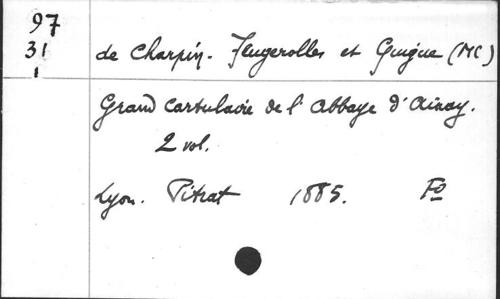 97
31
1
de Charpin. Feugerolles et Guigue (MC)
Grand cartulaire de l'abbaye d'Ainay.
2 vol.
Lyon. Pitrat 1885. Fo